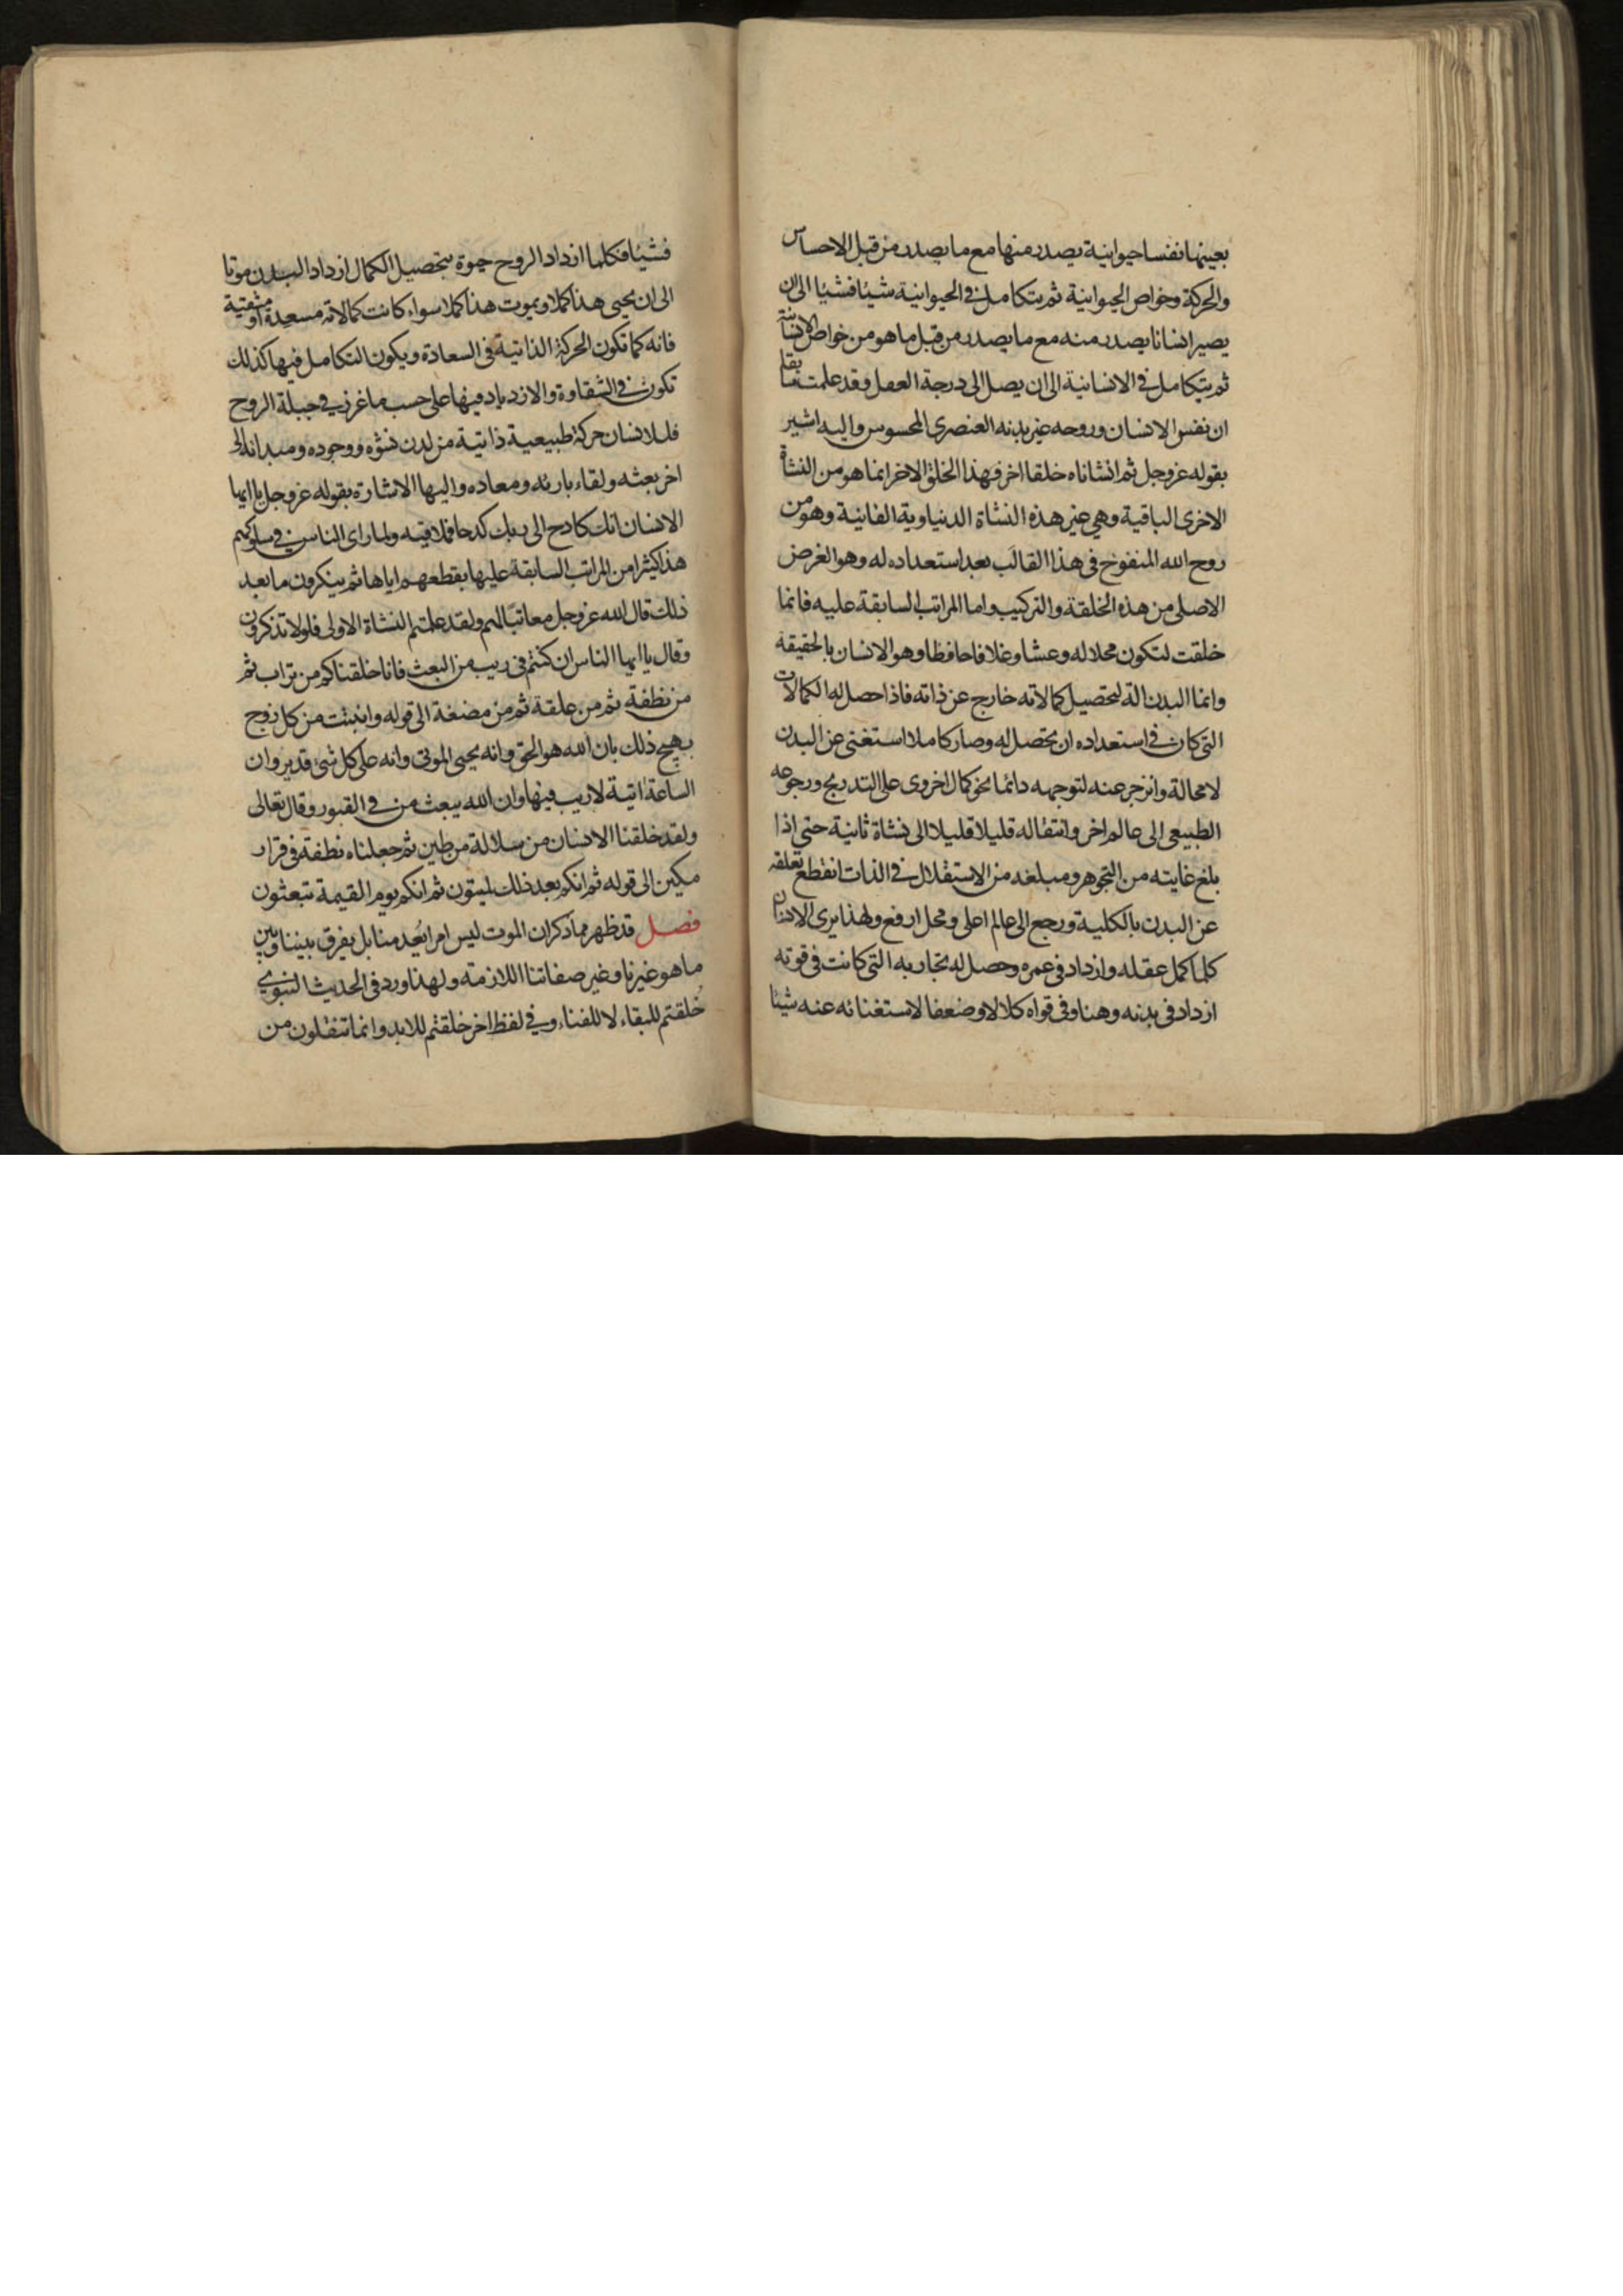 بعينها نفسا حيوانية يصدر منها مع ما يصدر من قبل الاحساس
والحركة وخواص الحيوانية ثم يتكامل في الحيوانية شيئا فشيئا الى ان
يصير انسانا يصدر منه مع ما يصدر من قبل ما هو من خواص الانسانية
ثم يتكامل في الانسانية الى ان يصل الى درجة العقل وقد علمت
ان نفس الانسان وروحه غير بدنه العنصري المحسوس واليه اشير
بقوله عز وجل ثم انشاناه خلقا اخر فهذا الخلق الاخر انما هو من النشاة
الاخرى الباقية وهي غير هذه النشاة الدنياوية الفانية وهو من
روح الله المنفوخ في هذا القالب بعد استعداده له وهو الغرض
الاصلي من هذه الخلقة والتركيب واما المراتب السابقة عليه فانما
خلقت لتكون محلا له وعشا وغلافا حافظا وهو الانسان بالحقيقة
وانما البدن الة لتحصيل كمالاته خارج عن ذاته فاذا حصل له الكمالات
التي كان في استعداده ان تحصل له وصار كاملا استغنى عن البدن
لا محالة وانزجر عنه لتوجهه دائما نحو كمال اخروي على التدريج ورجوعه
الطبيعي الى عالم اخر وانتقاله قليلا قليلا الى نشاة ثانية حتى اذا
بلغ غايته من التجوهر ومبلغه من الاستقلال في الذات انقطع تعلقه
عن البدن بالكلية ورجع الى عالم اعلى ومحل ارفع ولهذا يرى الانسان
كلما كمل عقله وازداد في عمره وحصل له تجاربه التي كانت في قوته
ازداد في بدنه وهنا وفي قواه كلالا وضعفا لاستغنائه عنه شيئا
فشيئا فكلما ازداد الروح حيوة بتحصيل الكمال ازداد البدن موتا
الى ان يحيى هذا كملا ويموت هذا كملا سواء كانت كمالاته مسعدة او مشقية
فانه كما تكون الحركة الذاتية في السعادة ويكون التكامل فيها كذلك
تكون في الشقاوة والازدياد فيها على حسب ما غرز في جبلة الروح
فللانسان حركة طبيعية ذاتية من لدن نشوه ووجوده ومبدائه الى
اخر بعثه ولقاء بارئه ومعاده واليها الاشارة بقوله عز وجل يا ايها
الانسان انك كادح الى ربك كدحا فملاقيه ولما راى الناس في سلوكهم
هذا كثيرا من المراتب السابقة عليها بقطعهم اياها ثم ينكرون ما بعد
ذلك قال الله عز وجل معاتبا لهم ولقد علمتم النشاة الاولى فلولا تذكرون
وقال يا ايها الناس ان كنتم في ريب من البعث فانا خلقناكم من تراب ثم
من نطفة ثم من علقة ثم من مضغة الى قوله وانبتت من كل زوج
بهيج ذلك بان الله هو الحق وانه يحيى الموتى وانه على كل شيء قدير وان
الساعة اتية لا ريب فيها وان الله يبعث من في القبور وقال تعالى
ولقد خلقنا الانسان من سلالة من طين ثم جعلناه نطفة في قرار
مكين الى قوله ثم انكم بعد ذلك لميتون ثم انكم يوم القيمة تبعثون
فصل قد ظهر مما ذكر ان الموت ليس امرا يعدمنا بل يفرق بيننا وبين
ما هو غيرنا وغير صفاتنا اللازمة ولهذا ورد في الحديث النبوي
خلقتم للبقاء لا للفناء وفي لفظ اخر خلقتم للابد وانما تنقلون من